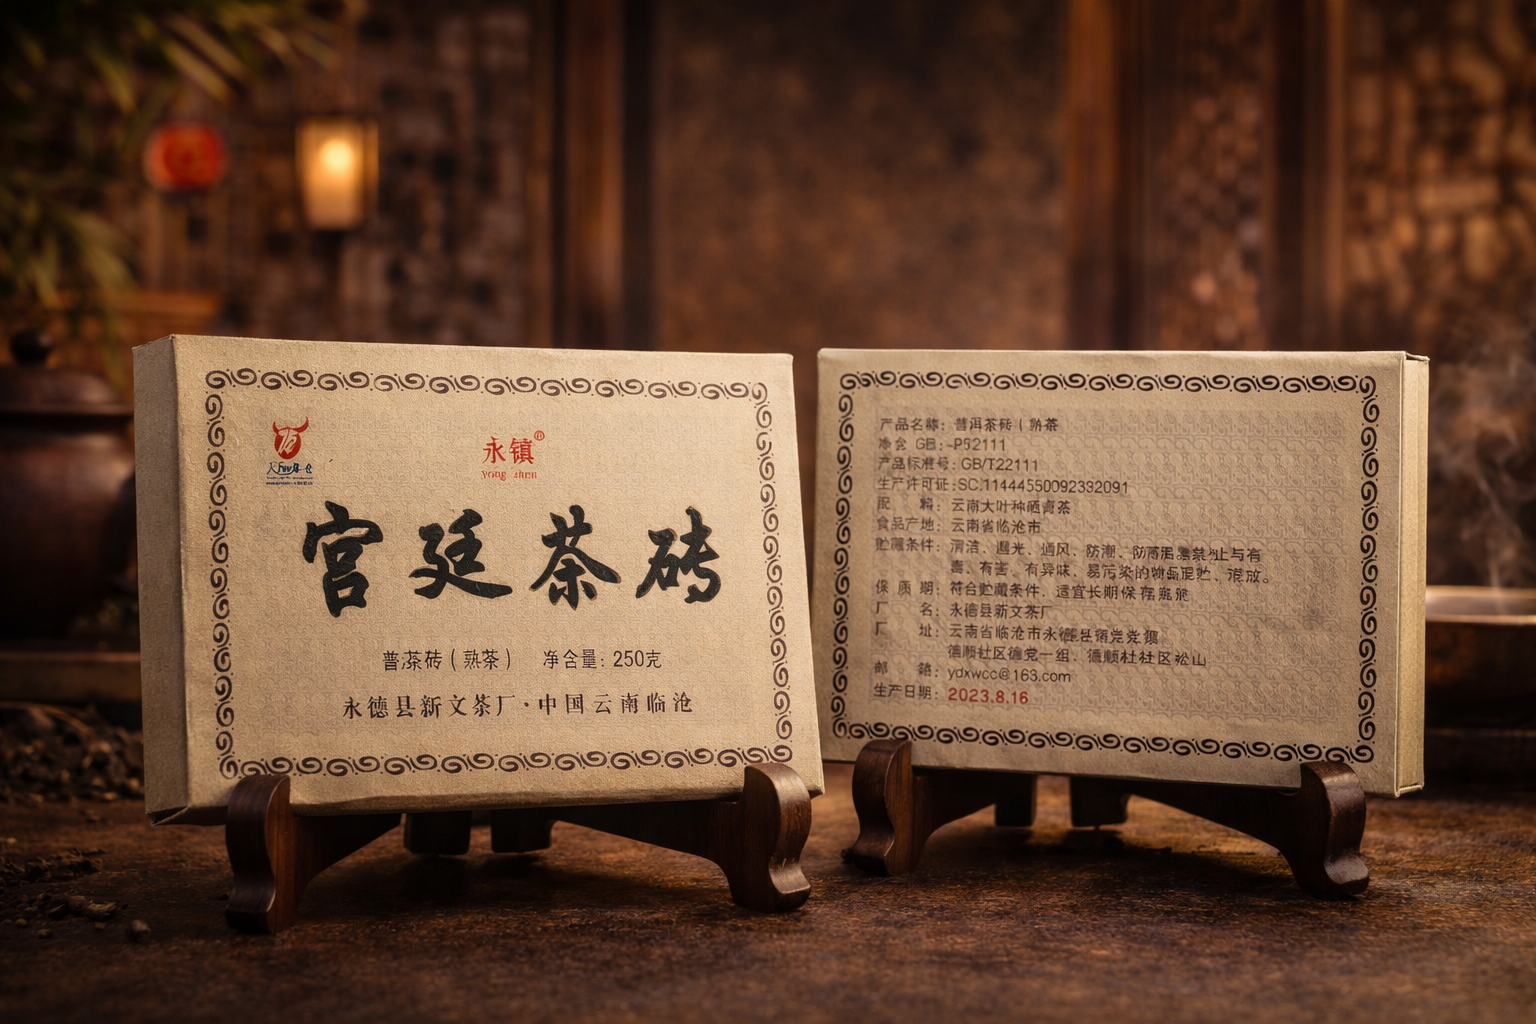 永镇®
yong zhen
宫廷茶砖
普洱茶砖(熟茶) 净含量: 250克
永德县新文茶厂·中国云南临沧
产品名称: 普洱茶砖(熟茶
GB: -P52111
产品标准号: GB/T22111
生产许可证: SC.11444550092332091
云南大叶种晒青茶
食品产地: 云南省临沧市
贮藏条件: 清洁、避光、通风、防潮、
有害、有异味、易污染的物品
保质期: 符合贮藏条件、适宜长期保存
厂名: 永德县新文茶厂
厂址: 云南省临沧市永德县
德顺社区德党一组、德顺社区
邮箱: ydxwcc@163.com
生产日期: 2023.8.16